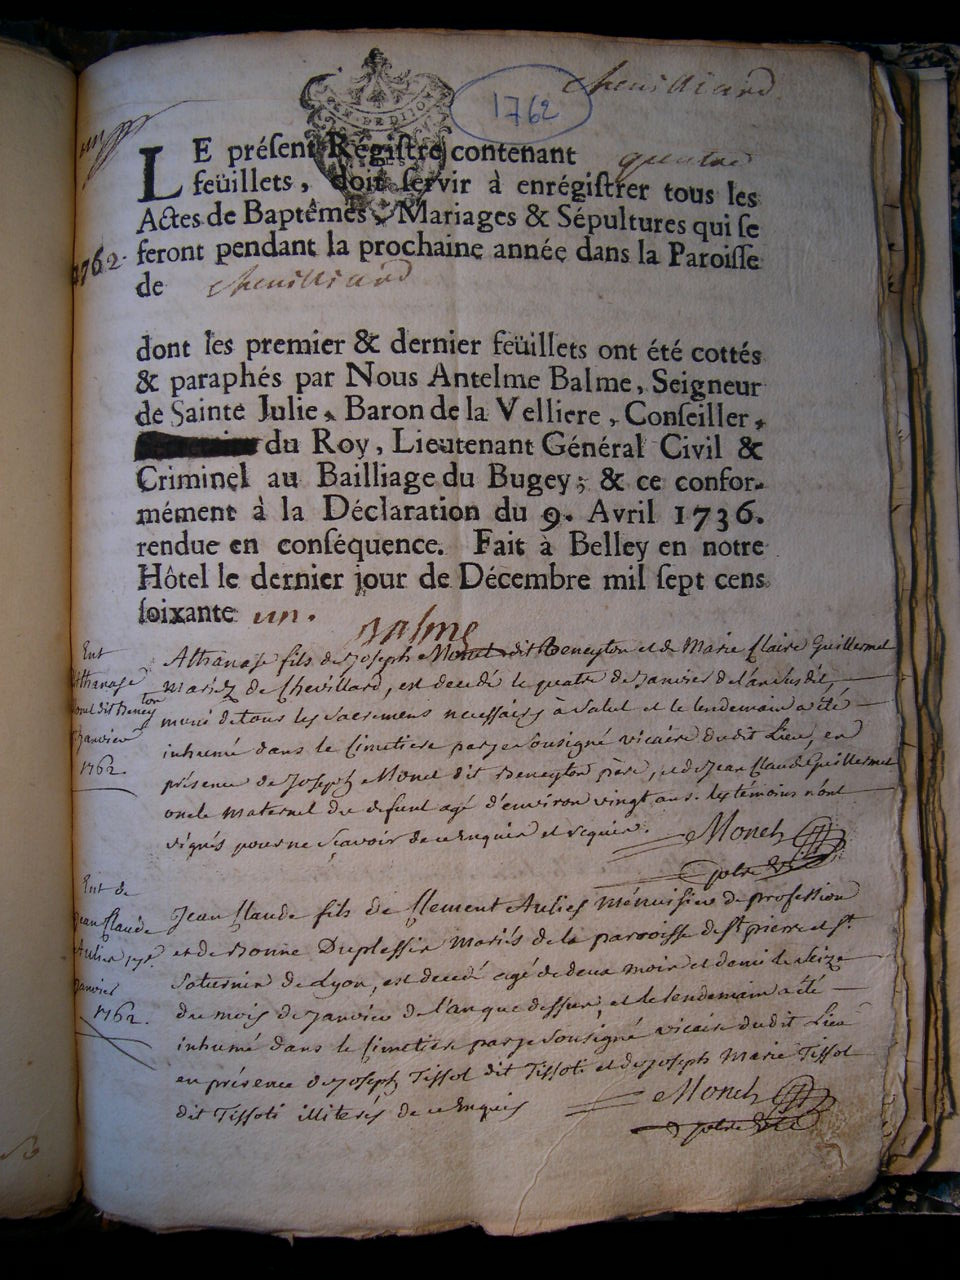 chevilliard
1762
GEN. DE DIJON
LE présent Régistre contenant quatre
feüillets, doit servir à enrégistrer tous les
Actes de Baptêmes, Mariages & Sépultures qui se
feront pendant la prochaine année dans la Paroisse
1762.
de chevilliard
dont les premier & dernier feüillets ont été cottés
& paraphés par Nous Antelme Balme, Seigneur
de Sainte Julie, Baron de la Velliere, Conseiller,
du Roy, Lieutenant Général Civil &
Criminel au Bailliage du Bugey; & ce confor-
mément à la Déclaration du 9. Avril 1736.
rendue en conséquence. Fait à Belley en notre
Hôtel le dernier jour de Décembre mil sept cens
soixante un.
Balme
Ent
Athanase
Monet dit Beneyton
Janvier
1762
Athanase fils de Joseph Monet dit Beneyton et de Marie Claire Guillermet
mariez de Chevillard, est decedé le quatre de Janvier de l'an susdit,
muni de tous les sacremens necessaires à salut et le lendemain a été
inhumé dans le Cimetiere par je sousigné vicaire dudit Lieu, en
présence de Joseph Monet dit Beneyton père, et de Jean Claude Guillermet
oncle maternel du defunt agé d'environ vingt ans. les témoins n'ont
signés pour ne sçavoir de ce Enquis et requis. Monet
ptre vic
Ent de
Jean Claude
Aulier 17e
Janvier
1762.
Jean Claude fils de Clement Aulier ménuisier de profession
et de Bonne Duplessir mariés de la parroisse de St pierre et St
Saturnin de Lyon, est decedé agé de deux mois et demi le seize
du mois de Janvier de l'an que dessus, et le lendemain a été
inhumé dans le Cimetiere par je sousigné vicaire dudit Lieu
en présence de Joseph Tissot dit Tissoti et de Joseph Marie Tissot
dit Tissoti illiterés de ce Enquis Monet
ptre vic